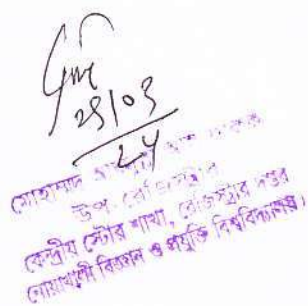 ২৪/০৩
২৪
মোহাম্মদ
উপ-রেজিস্ট্রার
কেন্দ্রীয় স্টোর শাখা, রেজিস্ট্রার দপ্তর
নোয়াখালী বিজ্ঞান ও প্রযুক্তি বিশ্ববিদ্যালয়।